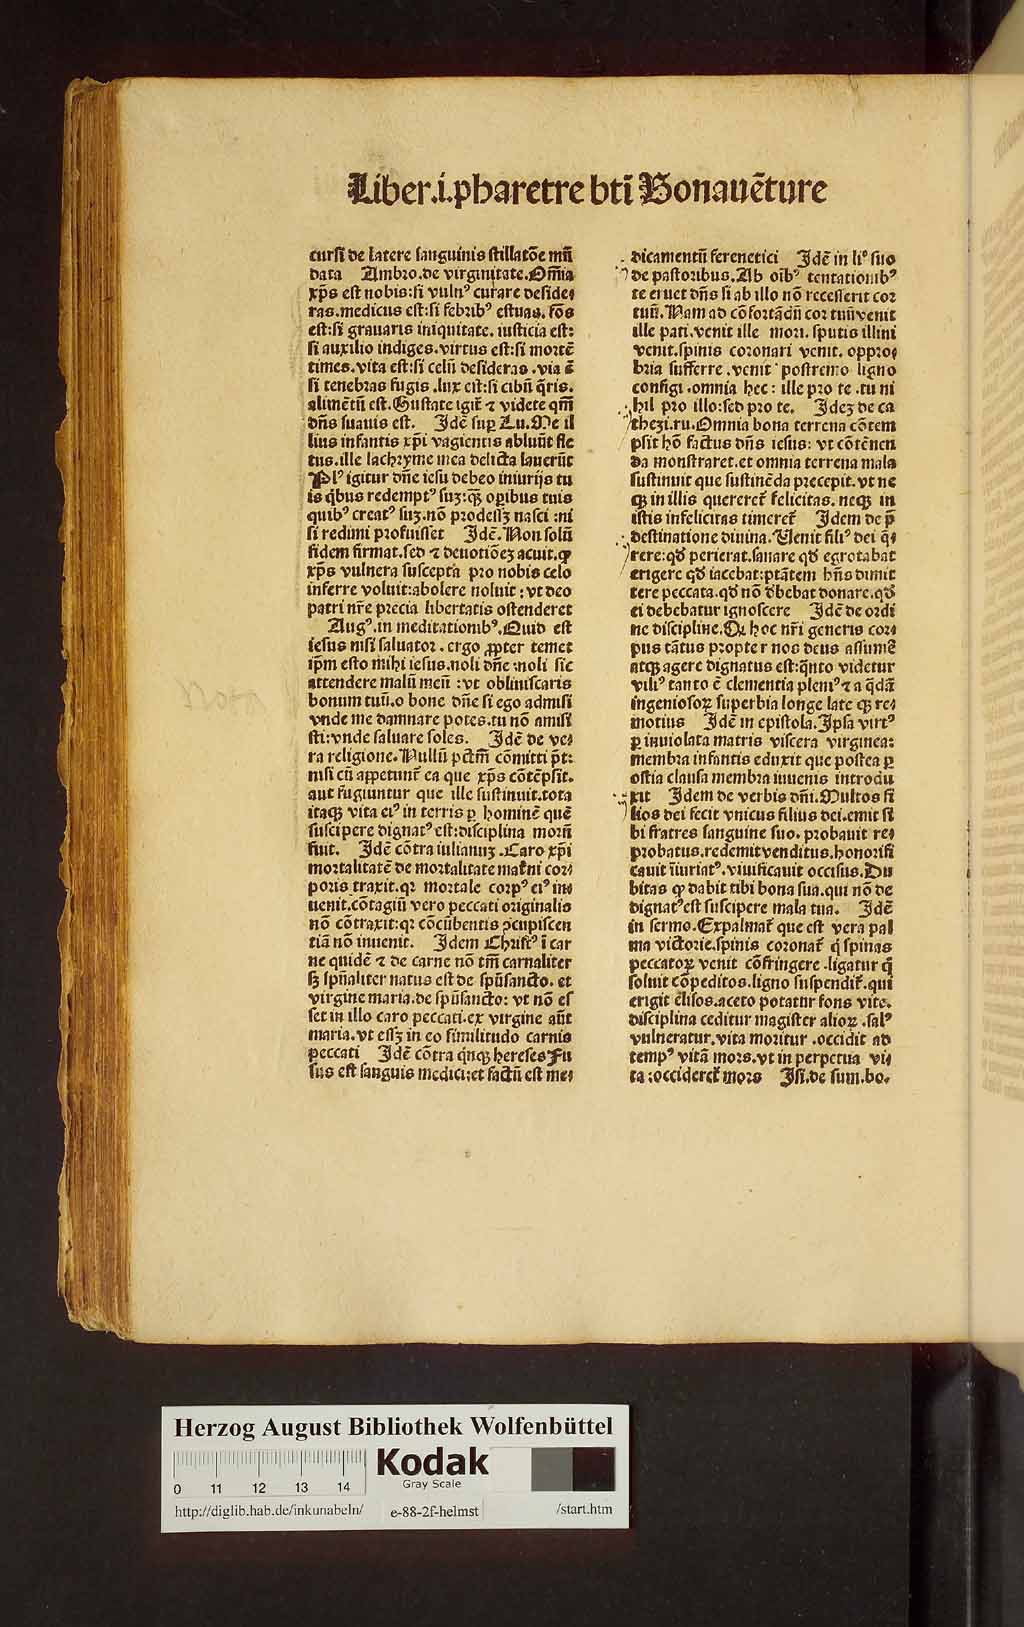 Liber.i.pharetre bti̅ Bonaue̅ture
cursi̅ de latere sanguinis stillato̅e mu̅
data Ambro.de virginitate.Om̅ia
xp̅s est nobis:si vulnꝰ curare deside⸗
ras.medicus est:si febribꝰ estuas. fo̅s
est:si grauaris iniquitate. iusticia est:
si auxilio indiges.virtus est:si morte̅
times.vita est:si celu̅ desideras.via e̅
si tenebras fugis .lux est:si cibu̅ q̅ris.
alime̅tu̅ est.Gustate igit̃ ⁊ videte qm̅
dn̅s suauis est. Ide̅ suꝑ Lu.Me il
lius infantis xp̅i vagientis abluu̅t fle
tus.ille lachryme mea delicta laueru̅t
Plꝰ igitur dn̅e iesu debeo iniurijs tu
is q̅bus redemptꝰ suꝫ:qꝫ oꝑibus tuis
quibꝰ creatꝰ suꝫ.no̅ prodessꝫ nasci :ni
si redimi profuisset Ide̅.Non solu̅
fidem firmat.sed ⁊ deuotio̅eꝫ acuit.ꝙ
xp̅s vulnera suscepta pro nobis celo
inferre voluit:abolere noluit:vt deo
patri nr̅e precia libertatis ostenderet
Augꝰ.in meditationibꝰ.Quid est
iesus nisi saluator . ergo ꝓpter temet
ip̅m esto mihi iesus.noli dn̅e :noli sic
attendere malu̅ meu̅ :vt obliuiscaris
bonum tuu̅.o bone dn̅e si ego admisi
vnde me damnare potes.tu no̅ amisi
sti:vnde saluare soles. Ide̅ de ve⸗
ra religione.Nullu̅ pctm̅ co̅mitti p̅t:
nisi cu̅ appetunt̃ ea que xp̅s co̅te̅psit.
aut fugiuntur que ille sustinuit.tota
itaqꝫ vita eiꝰ in terris ꝑ homine̅ que̅
suscipere dignatꝰ est:disciplina moru̅
fuit. Ide̅ co̅tra iulianuꝫ .Caro xp̅i
mortalitate̅ de mortalitate mat̃ni cor⸗
poris traxit.qꝛ mortale corpꝰ eiꝰ in⸗
uenit.co̅tagiu̅ vero peccati originalis
no̅ co̅traxit:qꝛ co̅cu̅bentis ꝯcupiscen
tia̅ no̅ inuenit. Idem Christꝰ i̅ car
ne quide̅ ⁊ de carne no̅ tm̅ carnaliter
sꝫ spu̅aliter natus est de spu̅sancto. et
virgine maria.de spu̅sancto: vt no̅ es
set in illo caro peccati.ex virgine au̅t
maria.vt essꝫ in eo similitudo carnis
peccati Ide̅ co̅tra q̅nqꝫ hereses Fu
sus est sanguis medici:et factu̅ est me⸗
dicamentu̅ ferenetici Ide̅ in liꝰ suo
de pastoribus.Ab oi̅bꝰ tentationibꝰ
te eruet dn̅s si ab illo no̅ recesserit cor
tuu̅.Nam ad co̅forta̅du̅ cor tuu̅venit
ille pati.venit ille mori. sputis illini
venit.spinis coronari venit. oppro⸗
bria sufferre .venit postremo ligno
configi .omnia hec: ille pro te .tu ni
hil pro illo:sed pro te. Ideꝫ de ca
theꝫi.ru.Omnia bona terrena co̅tem
psit ho̅ factus dn̅s iesus: vt co̅te̅nen
da monstraret.et omnia terrena mala
sustinuit que sustine̅da precepit.vt ne
qꝫ in illis quereret̃ felicitas. neqꝫ in
istis infelicitas timeret̃ Idem de p̅
destinatione diuina.Uenit filiꝰ dei q̅⸗
rere:qd̅ perierat.sanare qd̅ egrotabat
erigere qd̅ iacebat:pta̅tem hn̅s dimit
tere peccata.qd̅ no̅ d̅bebat donare.qd̅
ei debebatur ignoscere Ide̅ de ordi
ne discipline.Qꝛ hoc nr̅i generis cor⸗
pus ta̅tus propter nos deus assume̅
atqꝫ agere dignatus est:q̅nto videtur
viliꝰ tanto e̅ clementia pleniꝰ ⁊ a q̅da̅
ingeniosoꝝ superbia longe late qꝫ re⸗
motius Ide̅ in epistola.Ipsa virtꝰ
ꝑ inuiolata matris viscera virginea:
membra infantis eduxit que postea ꝑ
ostia clausa membra iuuenis introdu
xit Idem de verbis dn̅i.Multos fi
lios dei fecit vnicus filius dei.emit si
bi fratres sanguine suo. probauit re⸗
probatus.redemit venditus.honorifi
cauit i̅iuriatꝰ.viuificauit occisus.Du
bitas ꝙ dabit tibi bona sua.qui no̅ de
dignatꝰ est suscipere mala tua. Ide̅
in sermo.Expalmat̃ que est vera pal
ma victorie.spinis coronat̃ q̅ spinas
peccatoꝝ venit co̅fringere .ligatur q̅
soluit co̅peditos.ligno suspendit̃.qui
erigit elisos.aceto potatur fons vite.
disciplina ceditur magister alioꝝ .salꝰ
vulneratur.vita moritur .occidit ad
tempꝰ vita̅ mors.vt in perpetua vi⸗
ta :occideret̃ mors Isi.de sum.bo.
Herzog August Bibliothek Wolfenbüttel
0 11 12 13 14
Kodak
Gray Scale
http://diglib.hab.de/inkunabeln/ e-88-2f-helmst /start.htm